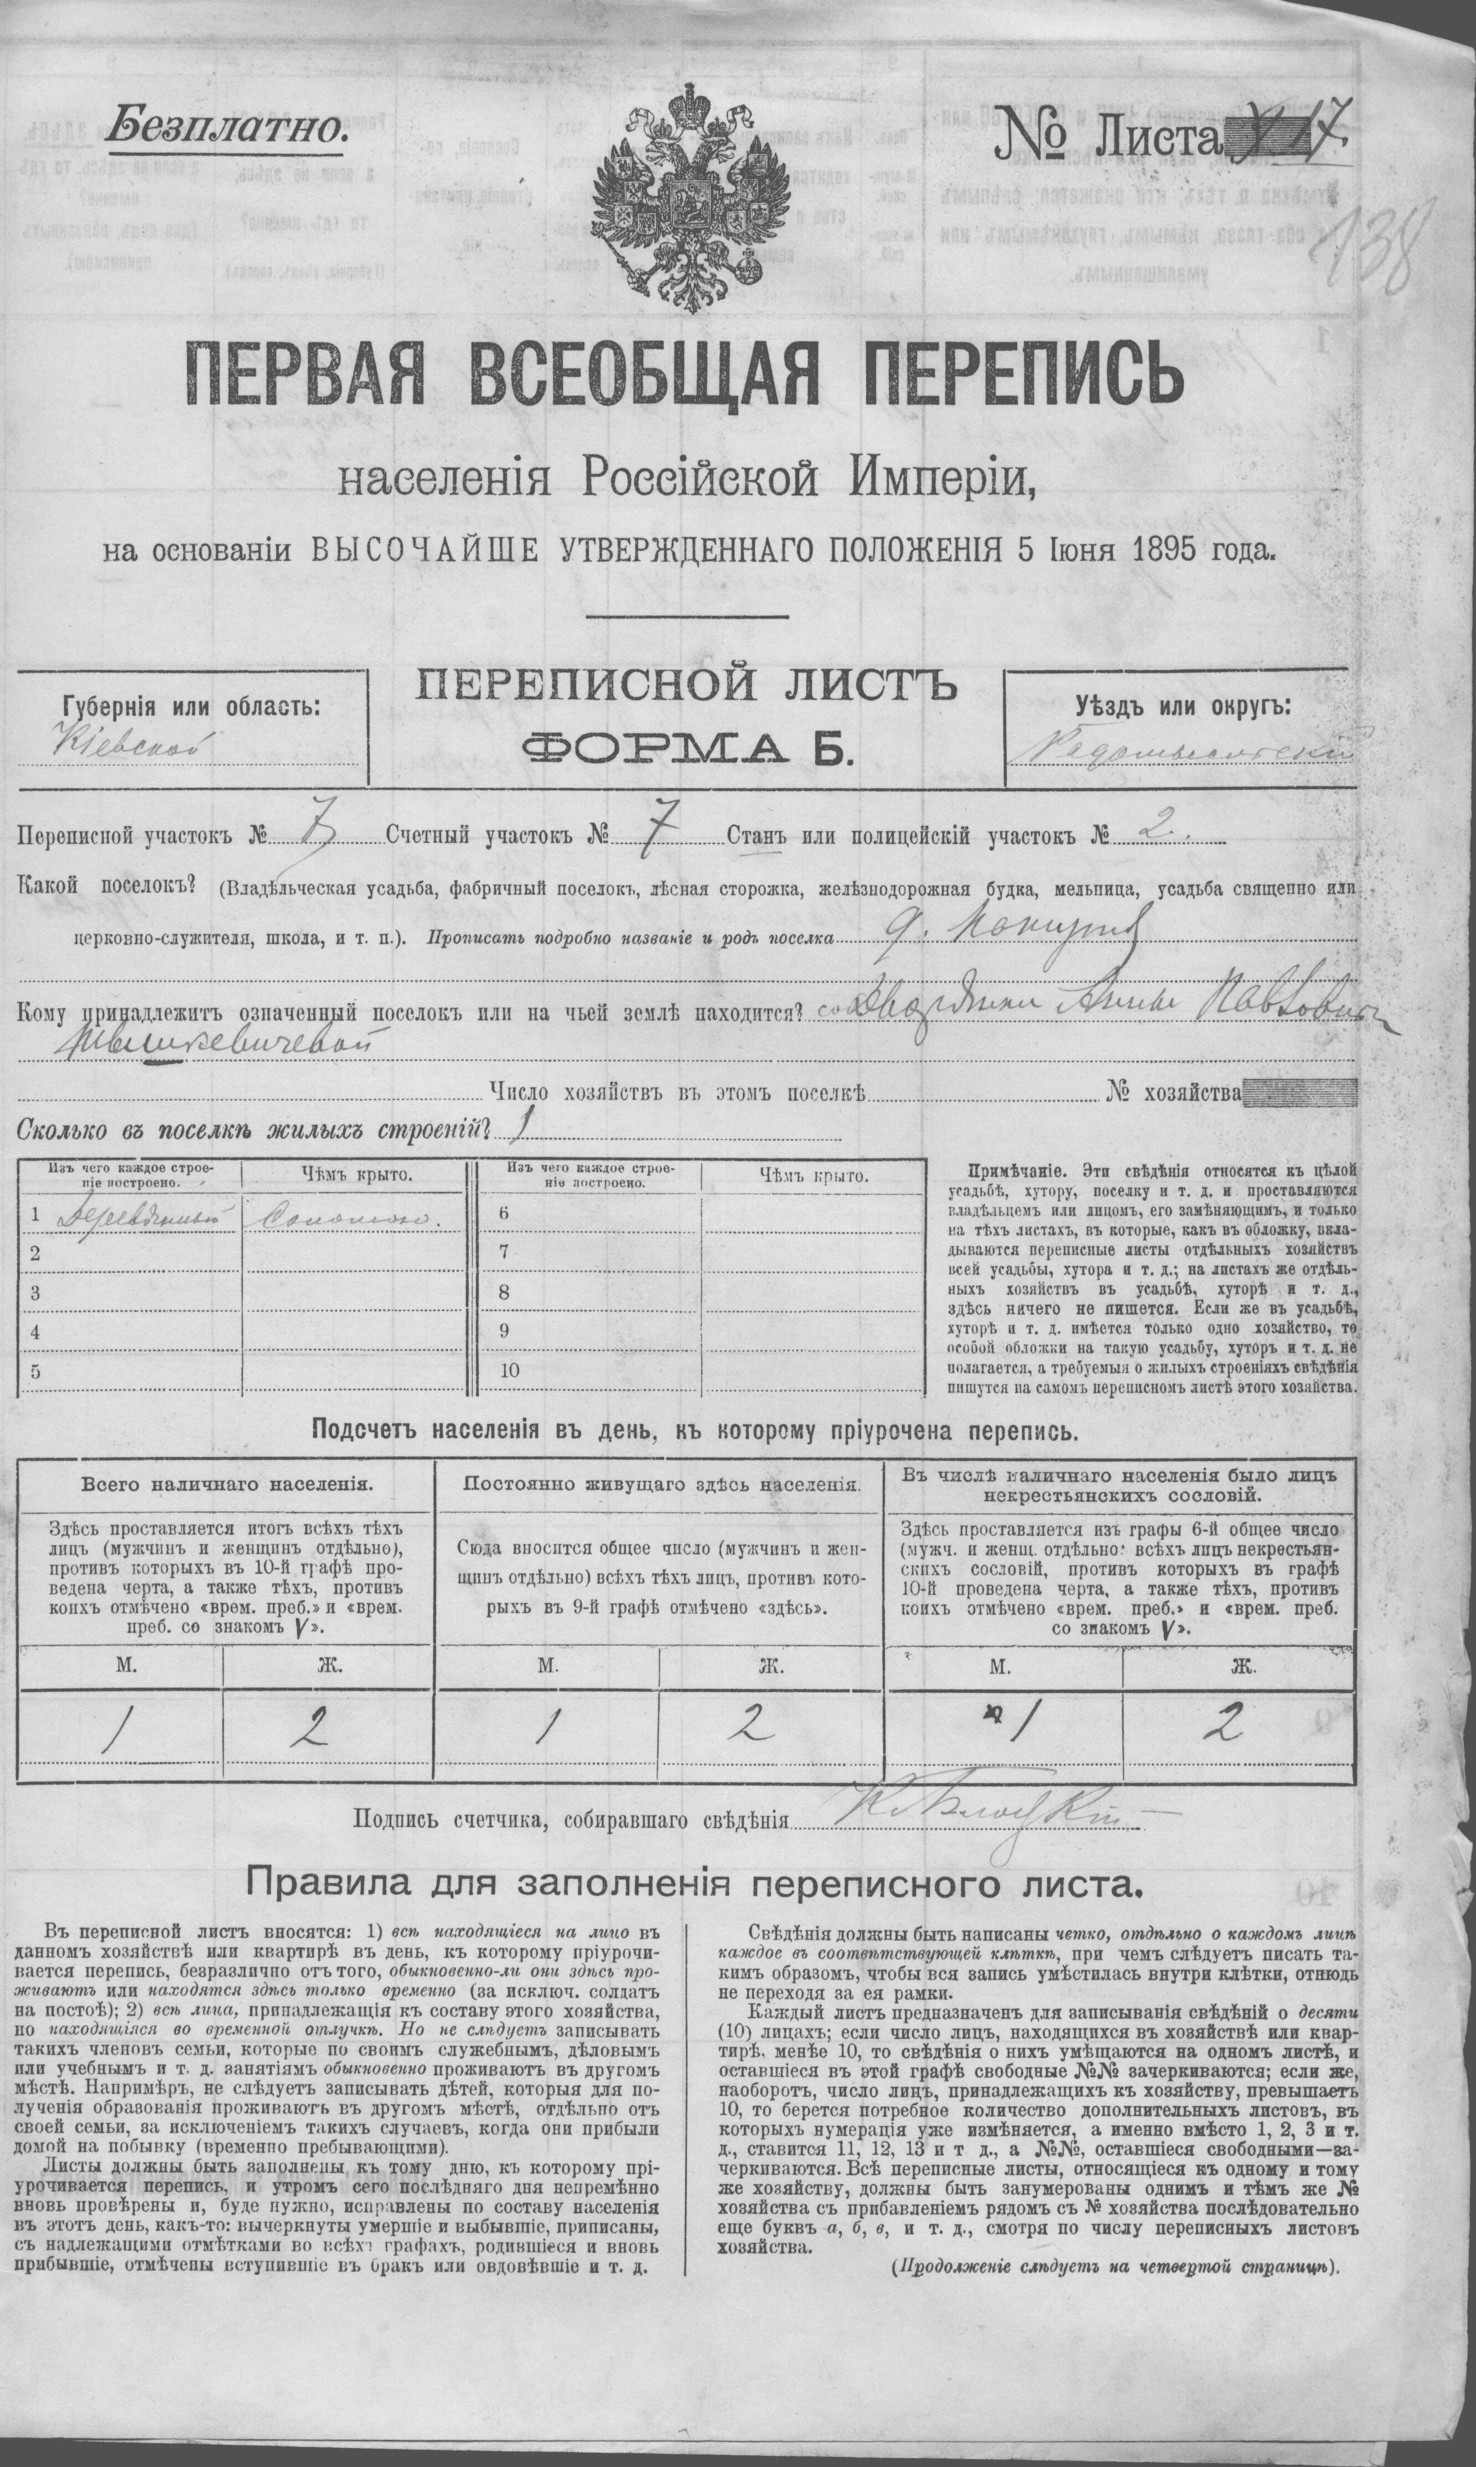 Безплатно.
№ Листа 17.
138
ПЕРВАЯ ВСЕОБЩАЯ ПЕРЕПИСЬ
населенія Россійской Имперіи,
на основаніи ВЫСОЧАЙШЕ УТВЕРЖДЕННАГО ПОЛОЖЕНІЯ 5 Іюня 1895 года.
Губернія или область:
Кіевской
ПЕРЕПИСНОЙ ЛИСТЪ
ФОРМА Б.
Уѣздъ или округъ:
Радомысльскій
Переписной участокъ № 7 Счетный участокъ № 7 Станъ или полицейскій участокъ № 2.
Какой поселокъ? (Владѣльческая усадьба, фабричный поселокъ, лѣсная сторожка, желѣзнодорожная будка, мельница, усадьба священно или
церковно-служителя, школа, и т. п.). Прописать подробно названіе и родъ поселка д.
Кому принадлежитъ означенный поселокъ или на чьей землѣ находится? Дворянки Анны
Число хозяйствъ въ этомъ поселкѣ № хозяйства
Сколько въ поселкѣ жилыхъ строеній? 1
Изъ чего каждое строе-
ніе построено.
Чѣмъ крыто.
Изъ чего каждое строе-
ніе построено.
Чѣмъ крыто.
1 Деревянный Соломою. 6
2 7
3 8
4 9
5 10
Примѣчаніе. Эти свѣдѣнія относятся къ цѣлой
усадьбѣ, хутору, поселку и т. д. и проставляются
владѣльцемъ или лицомъ, его замѣняющимъ, и только
на тѣхъ листахъ, въ которые, какъ въ обложку, вкла-
дываются переписные листы отдѣльныхъ хозяйствъ
всей усадьбы, хутора и т. д.; на листахъ же отдѣль-
ныхъ хозяйствъ въ усадьбѣ, хуторѣ и т. д.,
здѣсь ничего не пишется. Если же въ усадьбѣ,
хуторѣ и т. д. имѣется только одно хозяйство, то
особой обложки на такую усадьбу, хуторъ и т. д. не
полагается, а требуемыя о жилыхъ строеніяхъ свѣдѣнія
пишутся на самомъ переписномъ листѣ этого хозяйства.
Подсчетъ населенія въ день, къ которому пріурочена перепись.
Всего наличнаго населенія.
Здѣсь проставляется итогъ всѣхъ тѣхъ
лицъ (мужчинъ и женщинъ отдѣльно),
противъ которыхъ въ 10-й графѣ про-
ведена черта, а также тѣхъ, противъ
коихъ отмѣчено «врем. преб.» и «врем.
преб. со знакомъ V».
Постоянно живущаго здѣсь населенія.
Сюда вносится общее число (мужчинъ и жен-
щинъ отдѣльно) всѣхъ тѣхъ лицъ, противъ кото-
рыхъ въ 9-й графѣ отмѣчено «здѣсь».
Въ числѣ наличнаго населенія было лицъ
некрестьянскихъ сословій.
Здѣсь проставляется изъ графы 6-й общее число
(мужч. и женщ. отдѣльно) всѣхъ лицъ некрестьян-
скихъ сословій, противъ которыхъ въ графѣ
10-й проведена черта, а также тѣхъ, противъ
коихъ отмѣчено «врем. преб.» и «врем. преб.
со знакомъ V».
М. Ж. М. Ж. М. Ж.
1 2 1 2 1 2
Подпись счетчика, собиравшаго свѣдѣнія
Правила для заполненія переписного листа.
Въ переписной листъ вносятся: 1) всѣ находящіеся на лицо въ
данномъ хозяйствѣ или квартирѣ въ день, къ которому пріурочи-
вается перепись, безразлично отъ того, обыкновенно-ли они здѣсь про-
живаютъ или находятся здѣсь только временно (за исключ. солдатъ
на постоѣ); 2) всѣ лица, принадлежащія къ составу этого хозяйства,
но находящіяся во временной отлучкѣ. Но не слѣдуетъ записывать
такихъ членовъ семьи, которые по своимъ служебнымъ, дѣловымъ
или учебнымъ и т. д. занятіямъ обыкновенно проживаютъ въ другомъ
мѣстѣ. Напримѣръ, не слѣдуетъ записывать дѣтей, которыя для по-
лученія образованія проживаютъ въ другомъ мѣстѣ, отдѣльно отъ
своей семьи, за исключеніемъ такихъ случаевъ, когда они прибыли
домой на побывку (временно пребывающими).
Листы должны быть заполнены къ тому дню, къ которому прі-
урочивается перепись, и утромъ сего послѣдняго дня непремѣнно
вновь провѣрены и, буде нужно, исправлены по составу населенія
въ этотъ день, какъ-то: вычеркнуты умершіе и выбывшіе, приписаны,
съ надлежащими отмѣтками во всѣхъ графахъ, родившіеся и вновь
прибывшіе, отмѣчены вступившіе въ бракъ или овдовѣвшіе и т. д.
Свѣдѣнія должны быть написаны четко, отдѣльно о каждомъ лицѣ
каждое въ соотвѣтствующей клѣткѣ, при чемъ слѣдуетъ писать та-
кимъ образомъ, чтобы вся запись умѣстилась внутри клѣтки, отнюдь
не переходя за ея рамки.
Каждый листъ предназначенъ для записыванія свѣдѣній о десяти
(10) лицахъ; если число лицъ, находящихся въ хозяйствѣ или квар-
тирѣ, менѣе 10, то свѣдѣнія о нихъ умѣщаются на одномъ листѣ, и
оставшіеся въ этой графѣ свободные №№ зачеркиваются; если же,
наоборотъ, число лицъ, принадлежащихъ къ хозяйству, превышаетъ
10, то берется потребное количество дополнительныхъ листовъ, въ
которыхъ нумерація уже измѣняется, а именно вмѣсто 1, 2, 3 и т.
д., ставится 11, 12, 13 и т д., а №№, оставшіеся свободными—за-
черкиваются. Всѣ переписные листы, относящіеся къ одному и тому
же хозяйству, должны быть занумерованы однимъ и тѣмъ же №
хозяйства съ прибавленіемъ рядомъ съ № хозяйства послѣдовательно
еще буквъ а, б, в, и т. д., смотря по числу переписныхъ листовъ
хозяйства.
(Продолженіе слѣдуетъ на четвертой страницѣ).